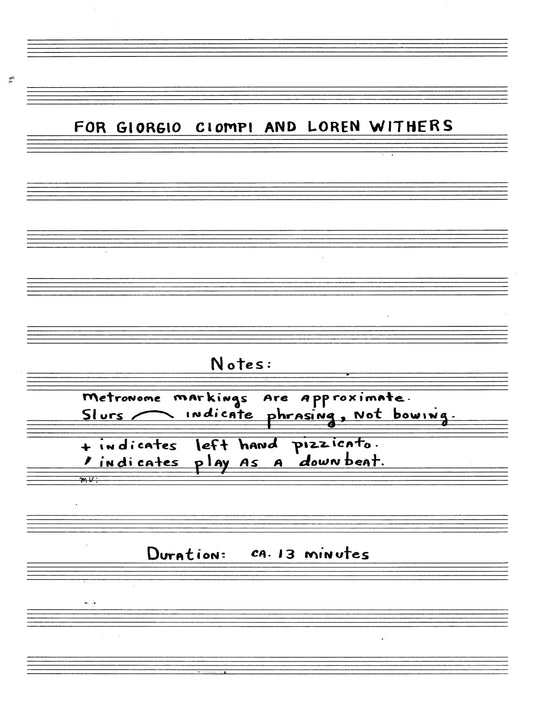 FOR GIORGIO CIOMPI AND LOREN WITHERS
Notes:
Metronome markings are approximate.
Slurs ⁀ indicate phrasing, not bowing.
+ indicates left hand pizzicato.
′ indicates play as a downbeat.
Duration: ca. 13 minutes